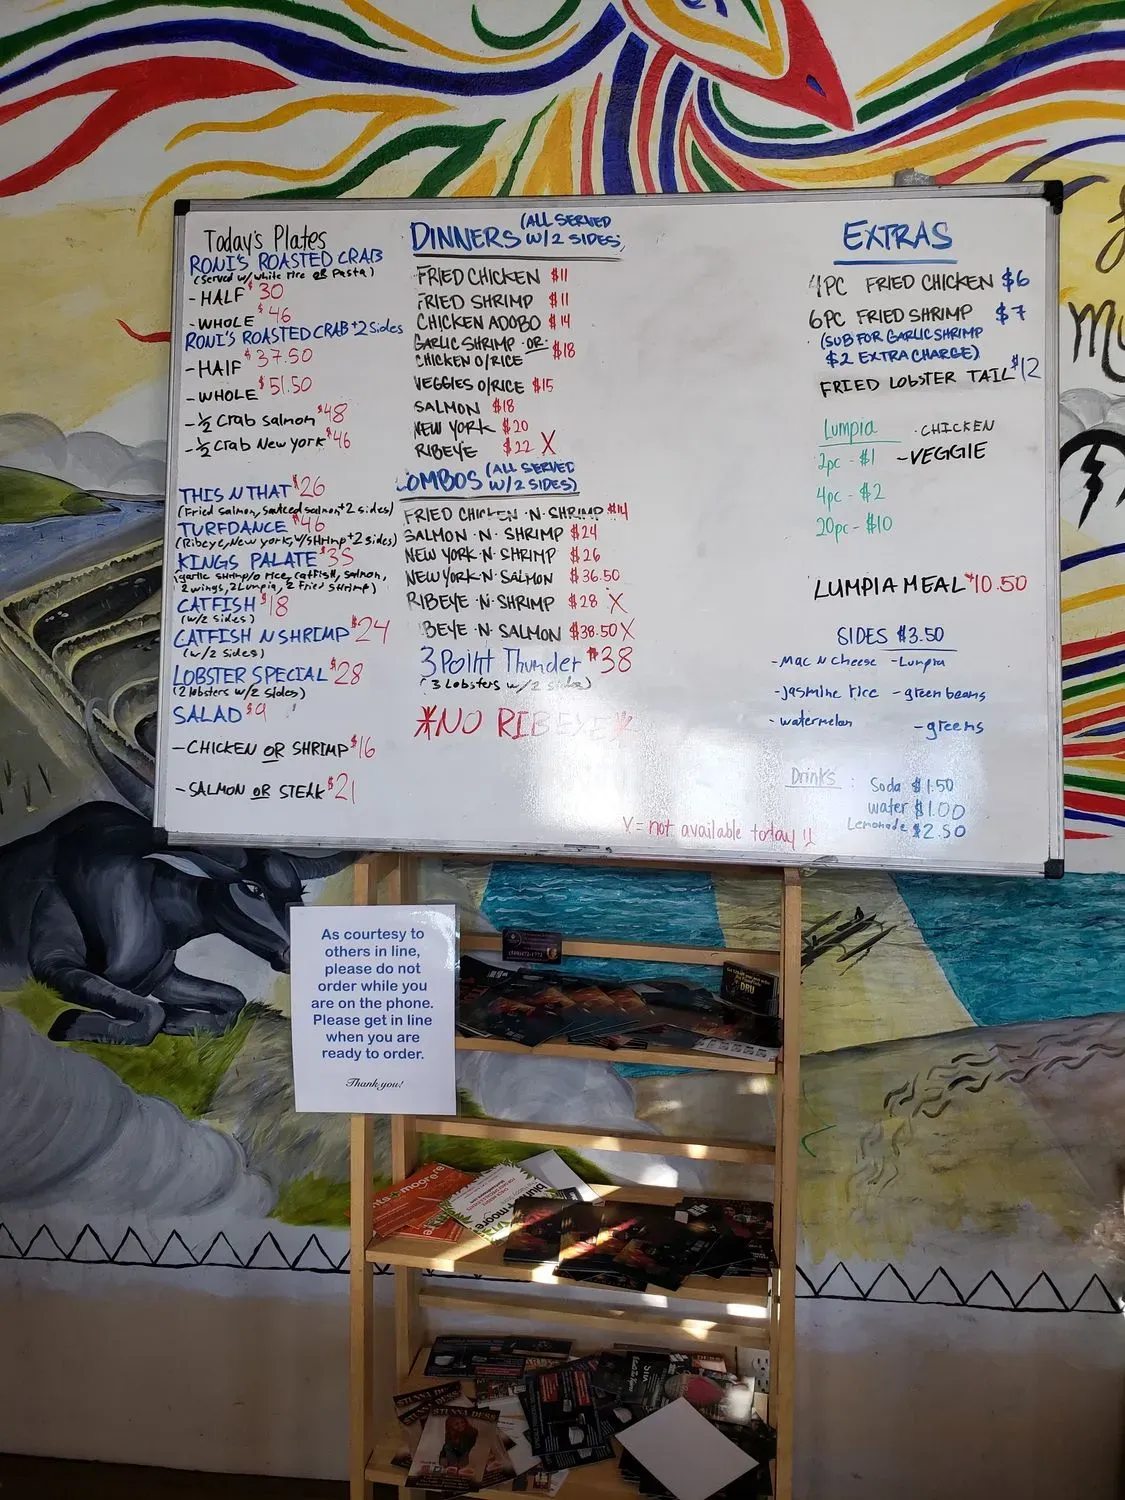 Today's Plates
RONI'S ROASTED CRAB
(served w/white rice OR Pasta)
- HALF $30
- WHOLE $46
RONI'S ROASTED CRAB +2 sides
- HAlF $37.50
- WHOLE $51.50
- ½ Crab Salmon $48
- ½ Crab New york $46
THIS N THAT $26
(Fried salmon, sauteed salmon +2 sides)
TURFDANCE $46
(Ribeye, New york, w/shrimp +2 sides)
KINGS PALATE $35
(garlic shrimp/o rice, catfish, salmon,
2 wings, 2 Lumpia, 2 Fried shrimp)
CATFISH $18
(w/2 sides)
CATFISH N SHRIMP $24
(w/2 sides)
LOBSTER SPECIAL $28
(2 lobsters w/2 sides)
SALAD $9
- CHICKEN OR SHRIMP $16
- SALMON OR STEAK $21
DINNERS (ALL SERVED
W/2 SIDES)
FRIED CHICKEN $11
FRIED SHRIMP $11
CHICKEN ADOBO $14
GARLIC SHRIMP OR
CHICKEN O/RICE $18
VEGGIES O/RICE $15
SALMON $18
NEW YORK $20
RIBEYE $22 X
COMBOS (ALL SERVED
W/2 SIDES)
FRIED CHICKEN ·N· SHRIMP $14
SALMON ·N· SHRIMP $24
NEW YORK ·N· SHRIMP $26
NEW YORK ·N· SALMON $36.50
RIBEYE ·N· SHRIMP $28 X
BEYE ·N· SALMON $38.50 X
3 Point Thunder $38
(3 Lobsters w/2 sides)
*NO RIBEYE*
X = not available today !!
EXTRAS
4PC FRIED CHICKEN $6
6PC FRIED SHRIMP $7
(SUB FOR GARLIC SHRIMP
$2 EXTRA CHARGE)
FRIED LOBSTER TAIL $12
Lumpia · CHICKEN
2pc - $1 - VEGGIE
4pc - $2
20pc - $10
LUMPIA MEAL $10.50
SIDES $3.50
- Mac N Cheese - Lumpia
- jasmine rice - green beans
- watermelon - greens
Drinks : Soda $1.50
water $1.00
Lemonade $2.50
As courtesy to
others in line,
please do not
order while you
are on the phone.
Please get in line
when you are
ready to order.
Thank you!
DBU
STUNNA DESS